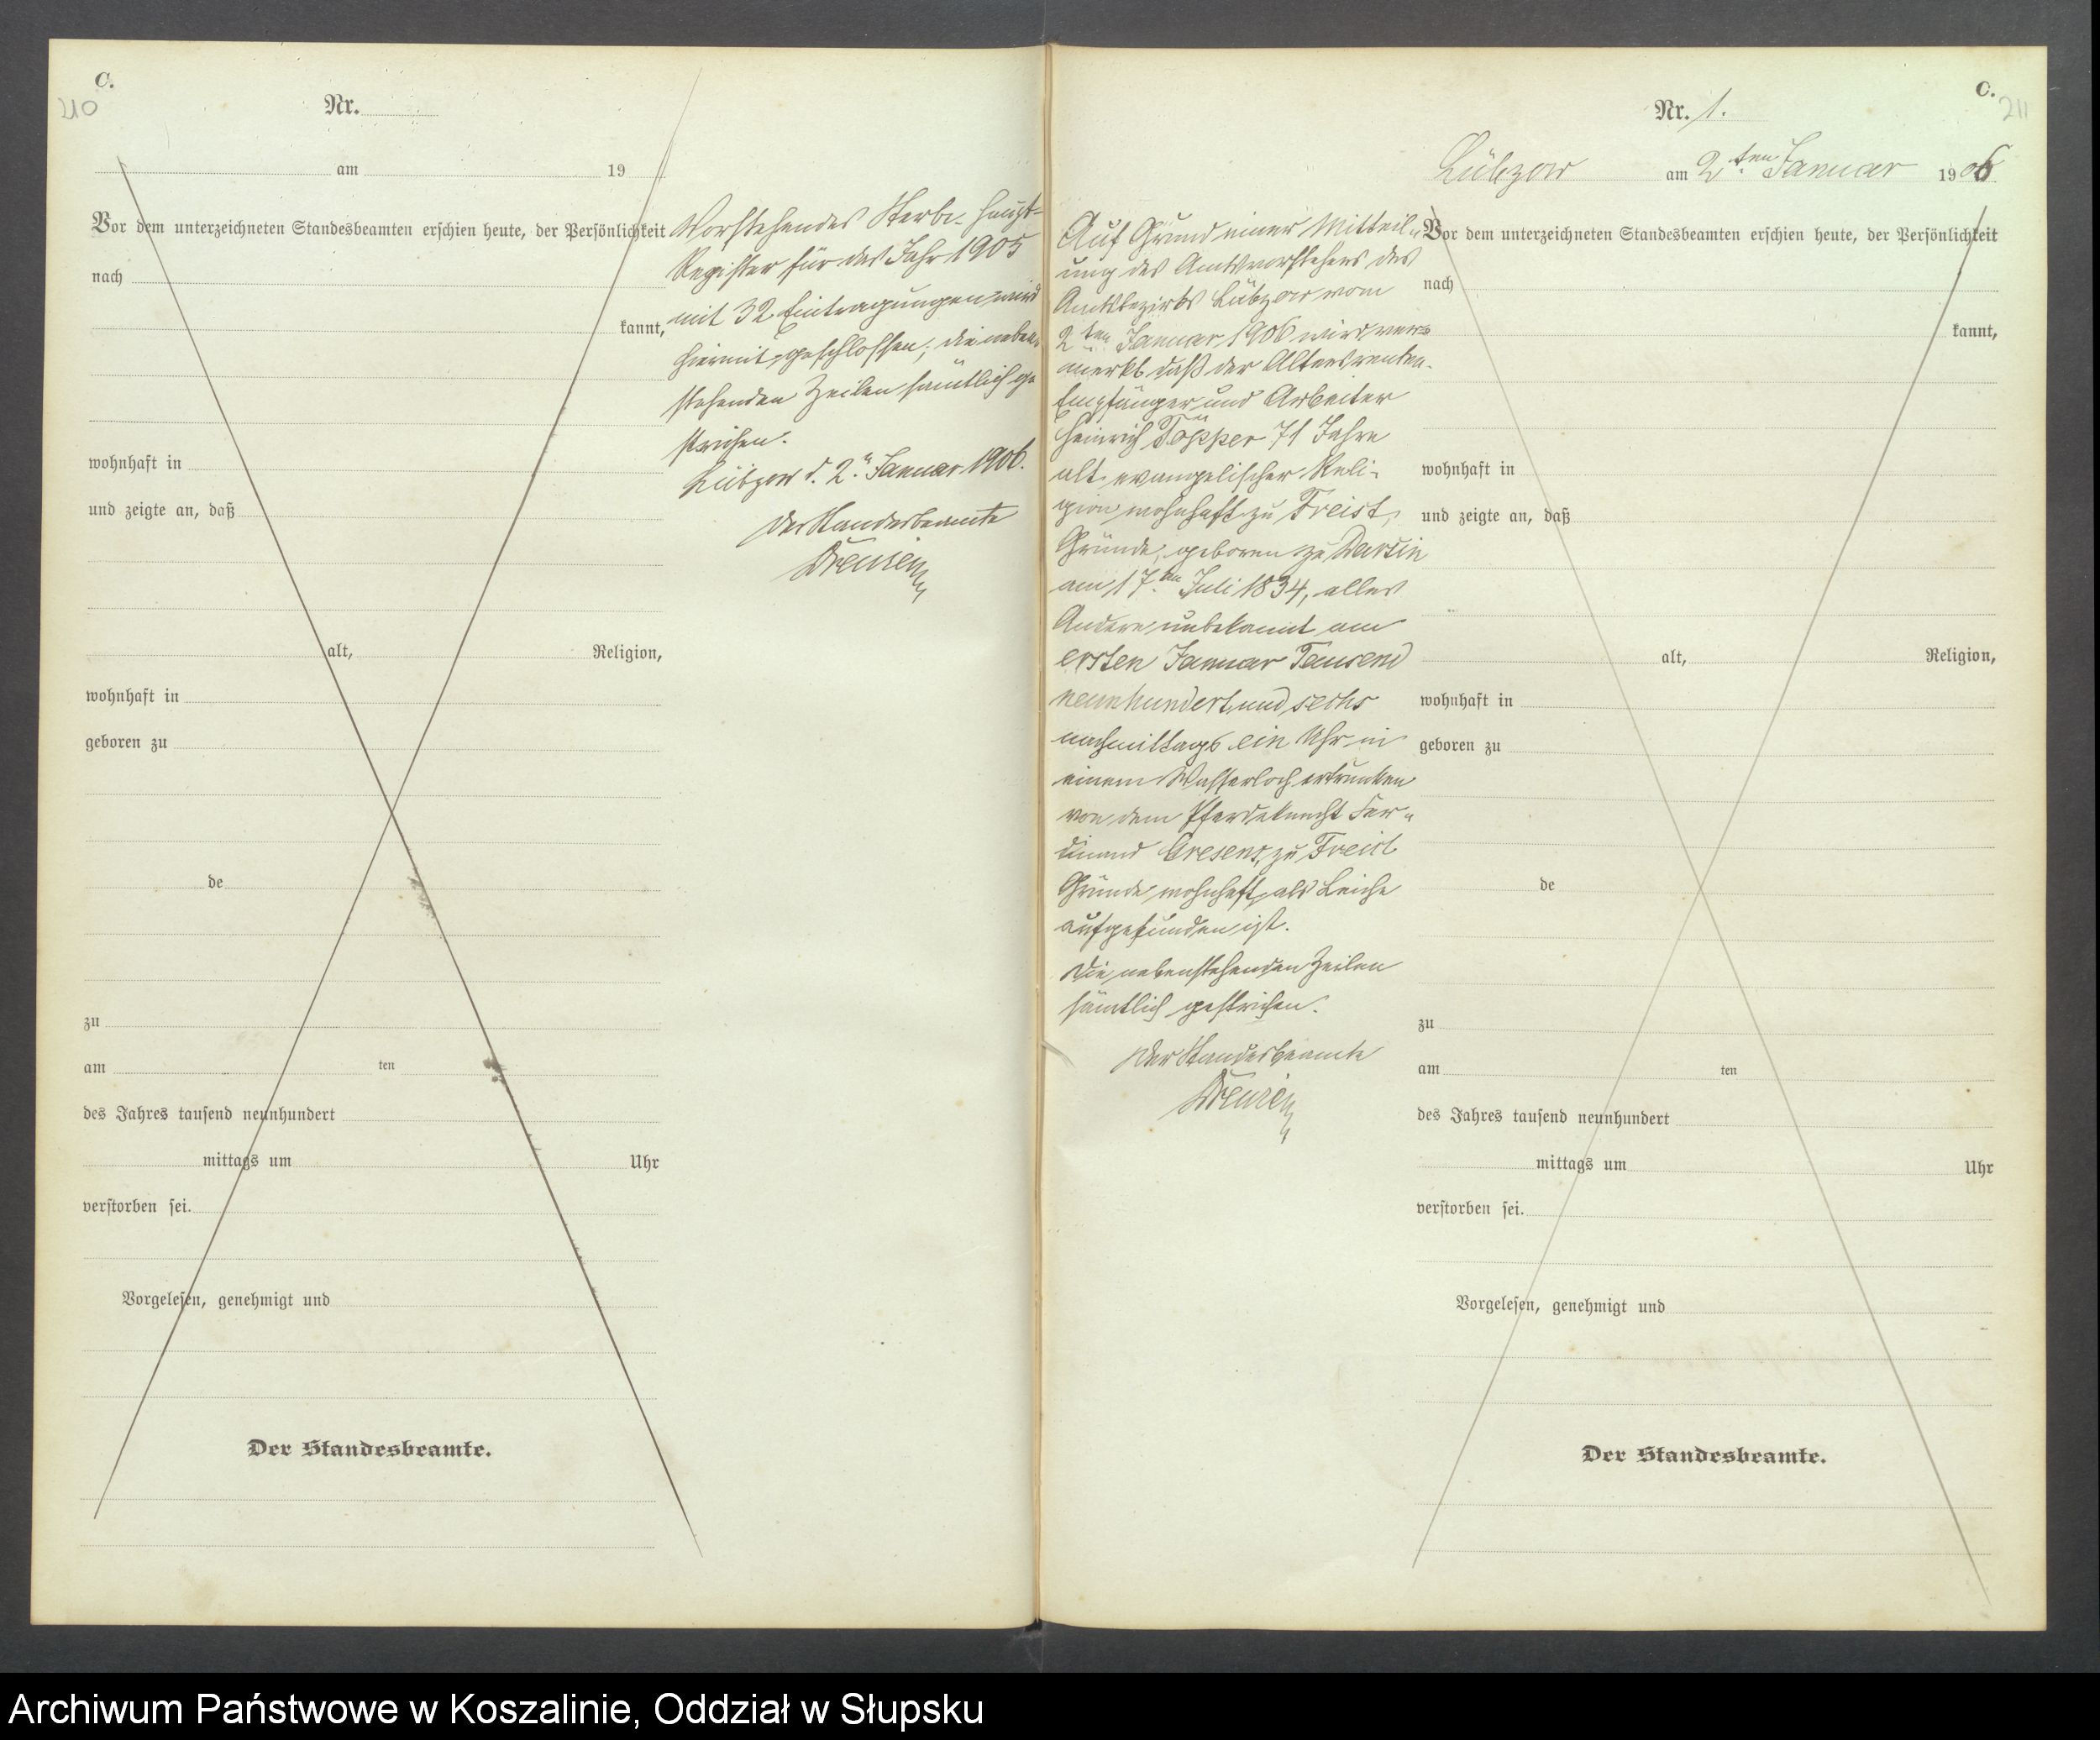 C.
210
Nr.
am 19
Vor dem unterzeichneten Standesbeamten erschien heute, der Persönlichkeit
nach
kannt,
wohnhaft in
und zeigte an, daß
alt, Religion,
wohnhaft in
geboren zu
de
zu
am ten
des Jahres tausend neunhundert
mittags um Uhr
verstorben sei.
Vorgelesen, genehmigt und
Der Standesbeamte.
Vorstehendes Sterbe-Haupt-
Register für das Jahr 1905
mit 32 Eintragungen wird
hiermit geschlossen; die neben-
stehenden Zeilen sämtlich ge
strichen.
Lübzow d. 2. Januar 1906.
Der Standesbeamte
C.
211
Nr. 1.
Lübzow am 2ten Januar 1906
Auf Grund einer Mitteil-
ung des Amtsvorstehers des
Amtsbezirks Lübzow vom
2ten Januar 1906 wird ver-
merkt daß der Altersrenten-
Empfänger und Arbeiter
Heinrich Töpper 71 Jahre
alt evangelischer Reli-
gion wohnhaft zu Freist,
Gründe, geboren zu Darsin
am 17ten Juli 1834, alles
Andere unbekannt am
ersten Januar Tausend
neunhundert und sechs
nachmittags ein Uhr in
einem Wasserloch ertrunken
von dem Pferdeknecht Fer-
dinand zu Freist
Gründe wohnhaft, als Leiche
aufgefunden ist.
Die nebenstehenden Zeilen
sämtlich gestrichen.
Der Standesbeamte
Vor dem unterzeichneten Standesbeamten erschien heute, der Persönlichkeit
nach
kannt,
wohnhaft in
und zeigte an, daß
alt, Religion,
wohnhaft in
geboren zu
de
zu
am ten
des Jahres tausend neunhundert
mittags um Uhr
verstorben sei.
Vorgelesen, genehmigt und
Der Standesbeamte.
Archiwum Państwowe w Koszalinie, Oddział w Słupsku